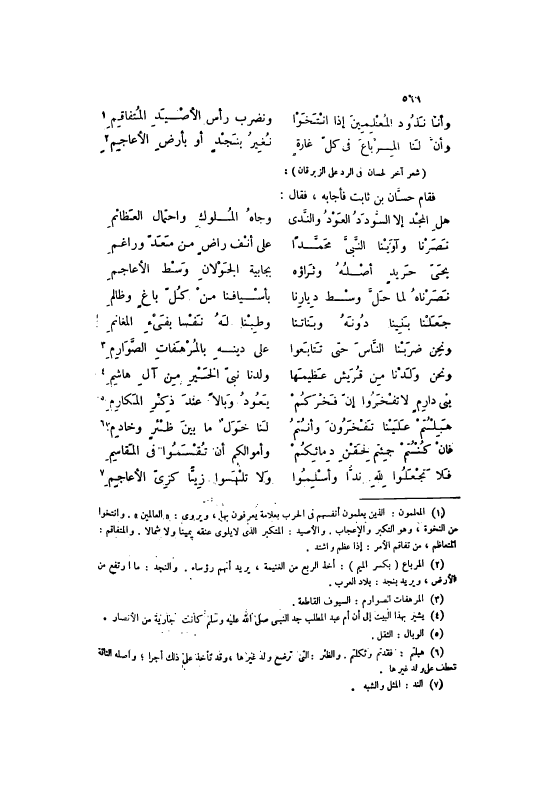 ٥٦٦
وأنا نَذود المُعْلِمِينَ إذا انْتَخَوْا ونضرب رأس الأصْيَدِ المُتفاقِمِ ١
وأن لنا المِرْباعَ فى كلّ غارةٍ نُغِيرُ بنَجْدٍ أو بأرضِ الأعاجِمِ ٢
( شعر آخر لحسان فى الرد على الزبرقان ) :
فقام حسَّان بن ثابت فأجابه ، فقال :
هلِ المَجْد إلا السُّودَدُ العَوْدُ والنَّدى وجاهُ المُلوكِ واحتمال العظائمِ
نَصَرْنا وآوَيْنا النَّبىَّ مُحَمَّدًا على أنْف راضٍ من مَعَدّ وراغمِ
بحَىّ حَرِيدٍ أصْلُهُ وثَراؤه بجابية الجَوْلان وَسْط الأعاجمِ
نَصَرْناهُ لما حَلَّ وسْط دِيارنا بأسْيافنا منْ كُلّ باغٍ وظالمِ
جَعَلْنا بَنِينا دُونَهُ وبَناتنا وطِبْنا لهُ نَفْسا بفَىْءِ المغانمِ
ونحن ضربْنا الناسَ حتى تتابَعوا على دينِهِ بالمُرْهَفاتِ الصَّوَارِمِ ٣
ونحن وَلَدْنا مِن قُرَيش عَظيمَها ولدنا نبىّ الخَيْرِ مِن آلِ هاشِمِ ٤
بنى دارِمٍ لاتفْخَرُوا إن فَخْرَكمْ يَعُودُ وَبالاً عندَ ذكْرِ المَكارِمِ ٥
هَبِلْتُمْ علَيْنا تَفْخَرُونَ وأنتُمُ لنا خَوَلٌ ما بينَ ظئْرٍ وخادمِ ٦
فانْ كُنْتُمُ جئتُم لحَقْنِ دمائِكمْ وأموالكم أن تُقْسَمُوا فى المَقاسِمِ
فلا تجْعلُوا للهِ ندًّا وأسْلِمُوا ولا تلْبَسوا زِيًّا كزِىّ الأعاجِمِ ٧
(١) المعلمون : الذين يعلمون أنفسهم فى الحرب بعلامة يعرفون بها ، ويروى : « العالمين » . وانتخوا
من النخوة ، وهو التكبر والإعجاب . والأصيد : المتكبر الذى لايلوى عنقه يمينا ولا شمالا . والمتفاقم :
المتعاظم ، من تفاقم الأمر : إذا عظم واشتد .
(٢) المرباع ( بكسر الميم ) : أخذ الربع من الغنيمة ، يريد أنهم رؤساء . والنجد : ما ارتفع من
الأرض ، ويريد بنجد : بلاد العرب .
(٣) المرهفات الصوارم : السيوف القاطعة .
(٤) يشير بهذا البيت إلى أن أم عبد المطلب جد النبى صلى الله عليه وسلم كانت جارية من الأنصار .
(٥) الوبال : الثقل .
(٦) هبلتم : فقدتم وثكلتم . والظئر : التى ترضع ولد غيرها ، وقد تأخذ على ذلك أجرا ؛ وأصله الناقة
تعطف على ولد غيرها .
(٧) الند : المثل والشبه .